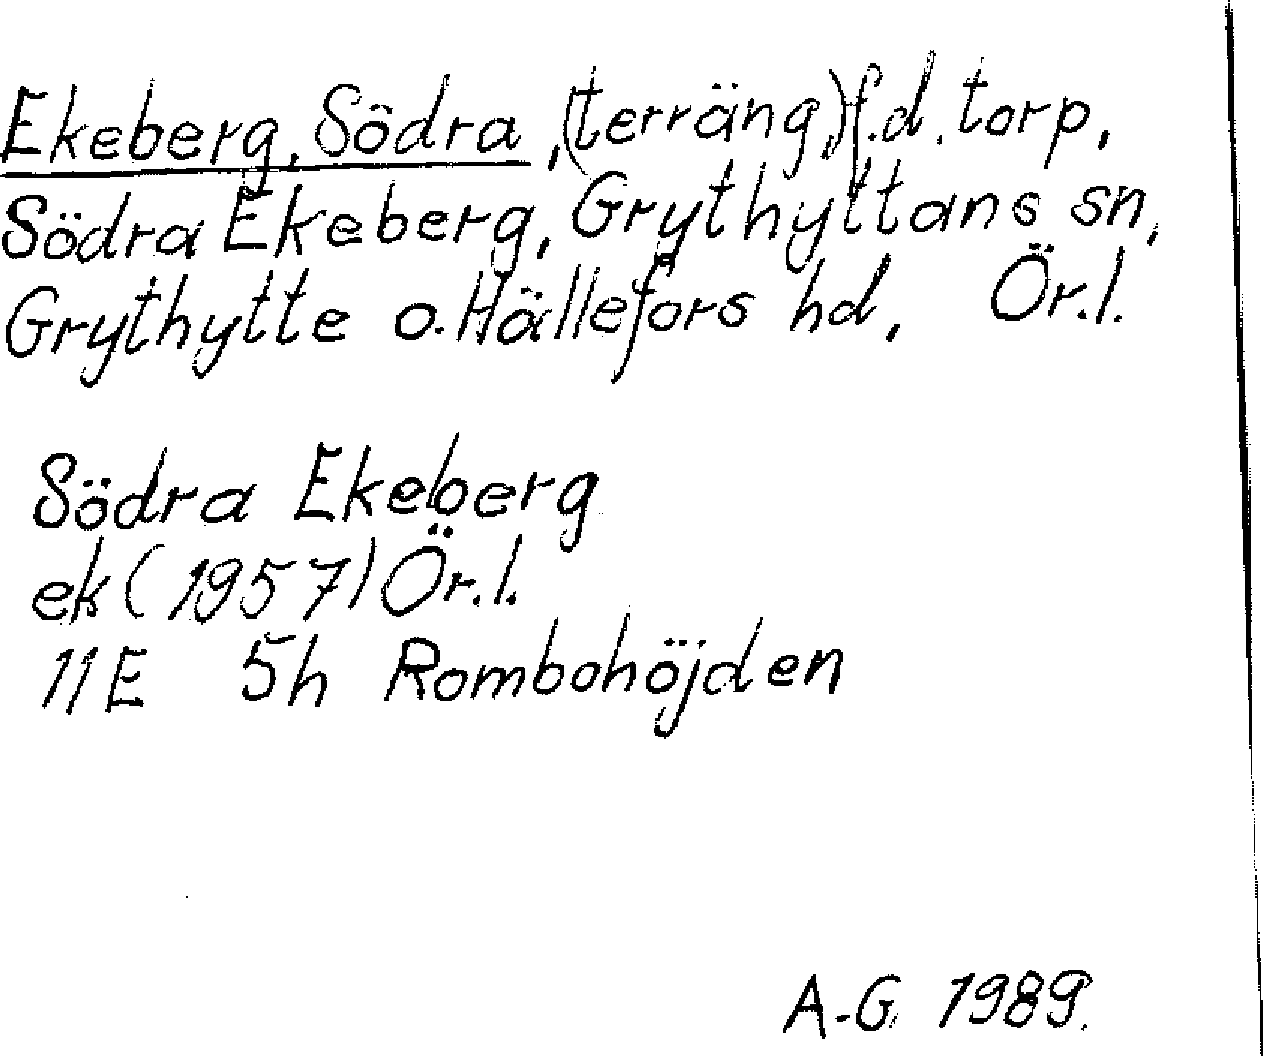 Ekeberg, Södra, (terräng,) f.d. torp,
Södra Ekeberg, Grythyttans sn,
Grythytte o. Hällefors hd, Ör.l.
Södra Ekeberg
ek (1957) Ör.l.
11E 5h Rombohöjden
A-G 1989.